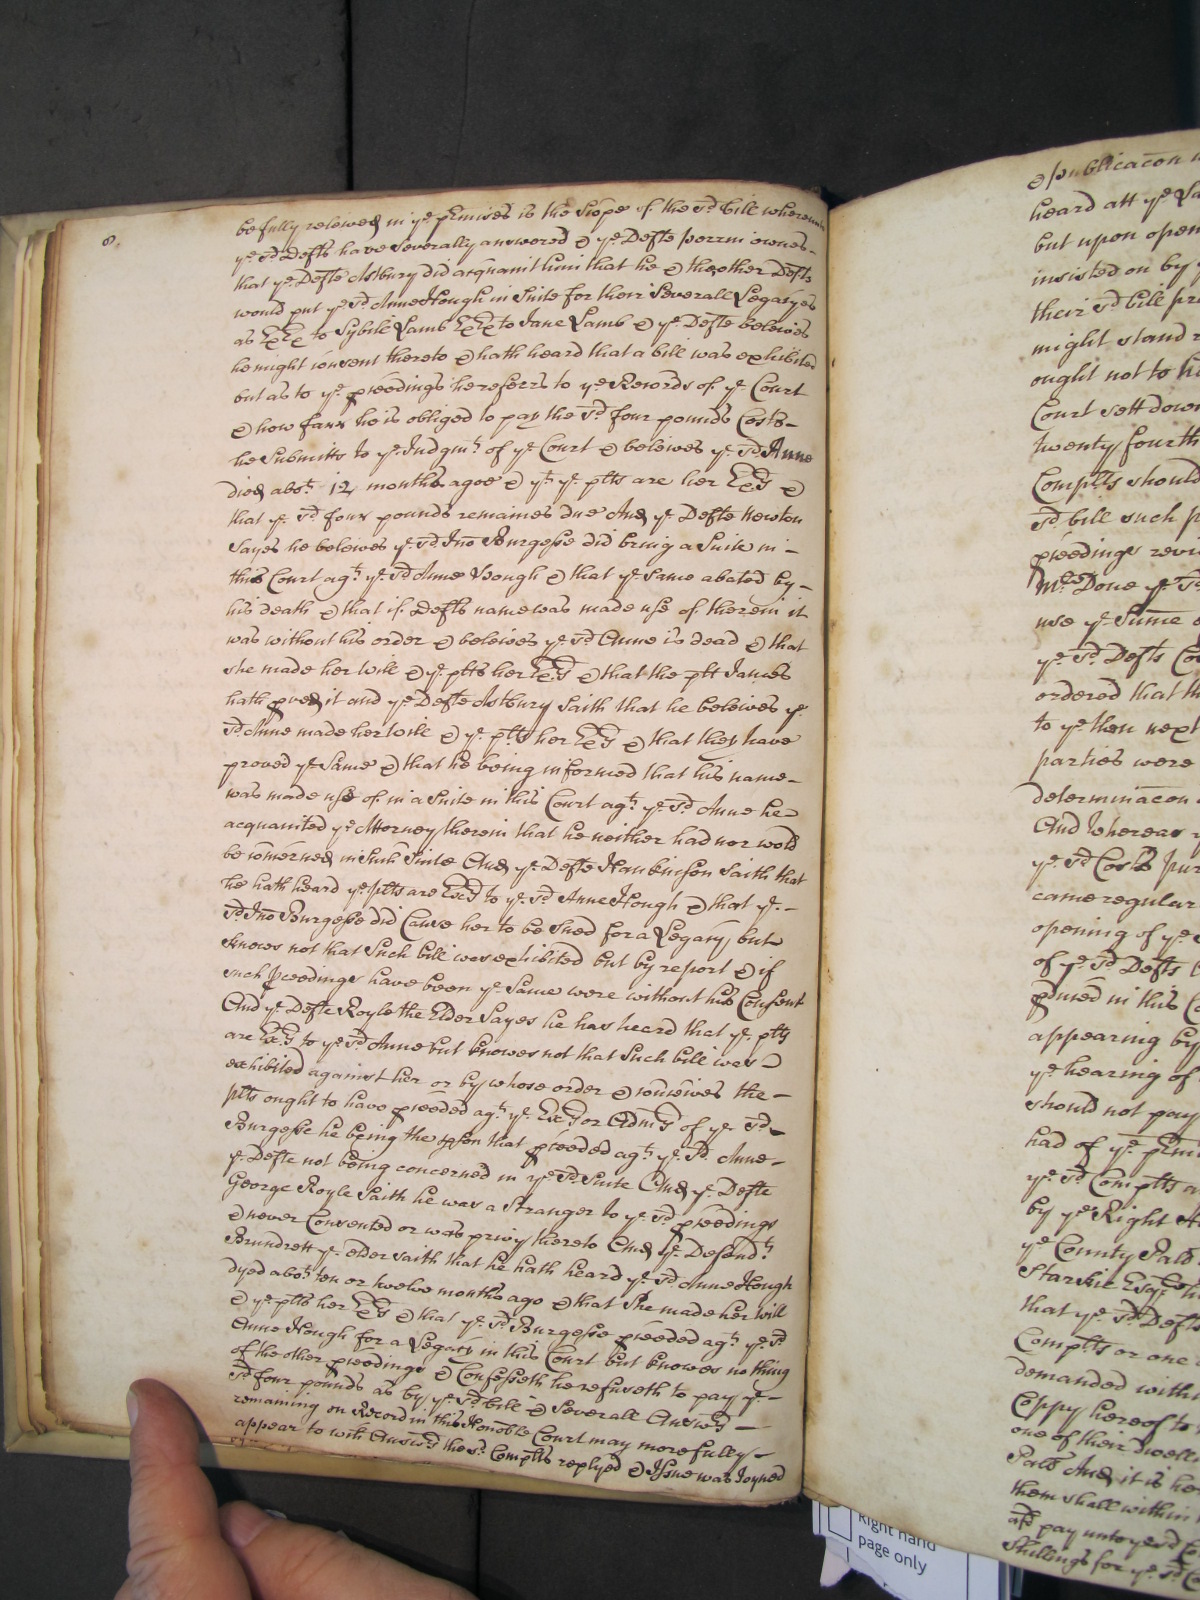 8.
be fully releived in ye. p̃mises is the scope of the sd. bill whereunto
ye. sd. Defts have severally answered & ye. Defte Perrin ownes -
that ye. Defte Astbury did acquaint him that he & the other Defts
would put ye. sd. Anne Hough in suite for their severall Legacyes
as to Sybill Lamb to Jane Lamb & ye. Defte beleives
he might consent thereto & hath heard that a bill was exhibited
but as to ye. p̲ceedings he referrs to ye. Records of ye. Court
& how farr he is obliged to pay the sd. four pounds Costs -
he submitts to ye. Judgmt. of ye. Court & beleives ye. sd. Anne
died abot. 12 months agoe & yt. ye. plts are her Exrs &
that ye. sd. four pounds remaines due And ye. Defte Newton
sayes he beleives ye. sd. Jno. Burgesse did bring a suite in -
this Court agt. ye. sd. Anne Hough & that ye. same abated by -
his death & that if Defts name was made use of therein it
was without his order & beleives ye. sd. Anne is dead & that
she made her will & ye. plts her Exrs & that the plt James
hath p̲ved it and ye. Defte Astbury saith that he beleives ye.
sd. Anne made her will & ye. plts her Exrs & that they have
proved ye. same & that he being informed that his name -
was made use of in a suite in this Court agt. ye. sd. Anne he
acquainted ye. Attorney therein that he neither had nor wold
be concerned in such suite And ye. Defte Hankinson saith that
he hath heard ye. plts are Exrs to ye. sd. Anne Hough & that ye. -
sd. Jno. Burgesse did Cause her to be sued for a Legacy but
knows not that such bill was exhibited but by report & if
such p̲ceedings have been ye. same were without his Consent
And ye. Defte Royle the Elder sayes he has heard that ye. plts
are Exrs to ye. sd. Anne but knowes not that such bill was -
exhibited against her or by whose order & conceives the -
plts ought to have p̲ceeded agt. ye. Exrs or Admrs of ye. sd. -
Burgesse he being the p̲son that p̲ceeded agt. ye. sd. Anne -
ye. Defte not being concerned in ye. sd. suite And ye. Defte
George Royle saith he was a stranger to ye. sd. p̲ceedings
& never Consented or was privy thereto And ye. Defendt.
Brundrett ye. elder saith that he hath heard ye. sd. Anne Hough
dyed abot. ten or twelve months ago & that she made her will
& ye. plts her Exrs & that ye. sd. Burgesse p̲ceeded agt. ye. sd.
Anne Hough for a Legacy in this Court but knowes nothing
of the other p̲ceedings & Confesseth he refuseth to pay ye. -
sd. four pounds as by ye. sd. bill & severall Answrs -
remaining on Record in this Honoble Court may more fully -
appear to wch Answrs the sd. Complts replyed & Issue was Joyned
& publicacōn
heard att ye.
but upon open
insisted on by
their sd. bill
might stand
ought not to
Court sett down
twenty fourth
Complts should
sd. bill such
p̲ceedings
Mr. Done ye. sd.
use ye. same
ye. sd. Defts
ordered that
to ye. then next
parties were
determinacōn
And Whereas
ye. sd. Costs
came regular
opening of ye.
of ye. sd. Defts
in this
appearing by
ye. hearing of
should not pay
had of ye. p̃mi
ye. sd. Complts
by ye. Right
ye. County Pals
Starkie Esqr.
that ye. sd. Defts
Complts or one
demanded within
Coppy hereof to
one of their dwell
Pals And it is
them shall within
afd pay unto ye. sd.
Shillings for ye. sd.
Right hand
page only